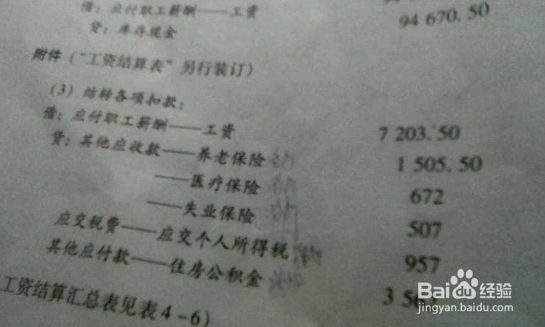 借：应付职工薪酬——工资 94 670.50
贷：库存现金
附件（“工资结算表”另行装订）
(3) 结转各项扣款：
借：应付职工薪酬——工资 7 203.50
贷：其他应收款——养老保险 1 505.50
——医疗保险 672
——失业保险 507
应交税费——应交个人所得税 957
其他应付款——住房公积金 3 5
工资结算汇总表见表4-6)
Baidu 经验
jingyan.baidu.com